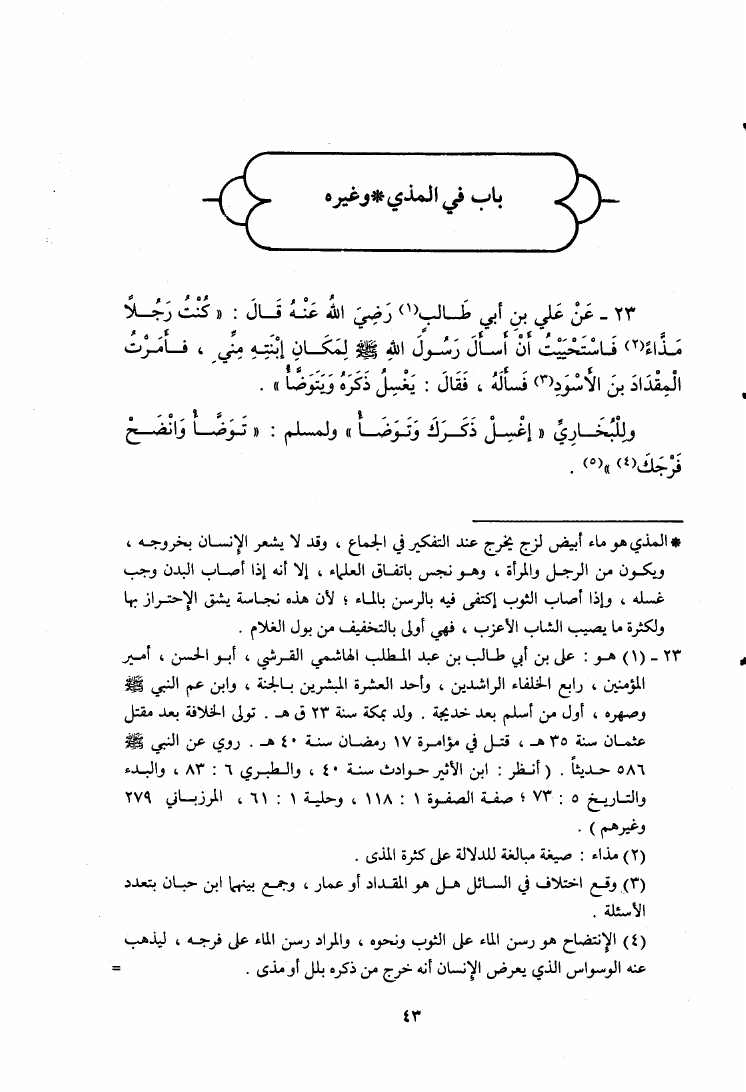 باب في المذي*وغيره
٢٣ - عَنْ عَلي بن أبي طَالبٍ(١) رَضِيَ اللهُ عَنْهُ قَالَ : « كُنْتُ رَجُلاً
مَذَّاءً(٢) فَاسْتَحْيَيْتُ أنْ أسألَ رَسُولَ اللهِ ﷺ لِمَكَانِ إبْنَتِهِ مِنِّي ، فَأمَرْتُ
الْمِقْدَادَ بنَ الأسْوَدِ(٣) فَسألَهُ ، فَقَالَ : يَغْسِلُ ذَكَرَهُ وَيَتَوَضَّأُ » .
ولِلْبُخَارِيِّ « إغْسِل ذَكَرَكَ وَتَوَضَأْ » ولمسلم : « تَوَضَّأْ وَانْضَحْ
فَرْجَكَ(٤) »(٥) .
* المذي هو ماء أبيض لزج يخرج عند التفكير في الجماع ، وقد لا يشعر الإنسان بخروجه ،
ويكون من الرجل والمرأة ، وهو نجس باتفاق العلماء ، إلا أنه إذا أصاب البدن وجب
غسله ، وإذا أصاب الثوب إكتفى فيه بالرسن بالماء ؛ لأن هذه نجاسة يشق الإحتراز بها
ولكثرة ما يصيب الشاب الأعزب ، فهي أولى بالتخفيف من بول الغلام .
٢٣ - (١) هو : علي بن أبي طالب بن عبد المطلب الهاشمي القرشي ، أبو الحسن ، أمير
المؤمنين ، رابع الخلفاء الراشدين ، وأحد العشرة المبشرين بالجنة ، وابن عم النبي ﷺ
وصهره ، أول من أسلم بعد خديجة . ولد بمكة سنة ٢٣ ق هـ . تولى الخلافة بعد مقتل
عثمان سنة ٣٥ هـ ، قتل في مؤامرة ١٧ رمضان سنة ٤٠ هـ . روي عن النبي ﷺ
٥٨٦ حديثاً . ( أنظر : ابن الأثير حوادث سنة ٤٠ ، والطبري ٦ : ٨٣ ، والبدء
والتاريخ ٥ : ٧٣ ؛ صفة الصفوة ١ : ١١٨ ، وحلية ١ : ٦١ ، المرزباني ٢٧٩
وغيرهم ) .
(٢) مذاء : صيغة مبالغة للدلالة على كثرة المذى .
(٣) وقع اختلاف في السائل هل هو المقداد أو عمار ، وجمع بينهما ابن حبان بتعدد
الأسئلة .
(٤) الإنتضاح هو رسن الماء على الثوب ونحوه ، والمراد رسن الماء على فرجه ، ليذهب
عنه الوسواس الذي يعرض الإنسان أنه خرج من ذكره بلل أو مذى . =
٤٣